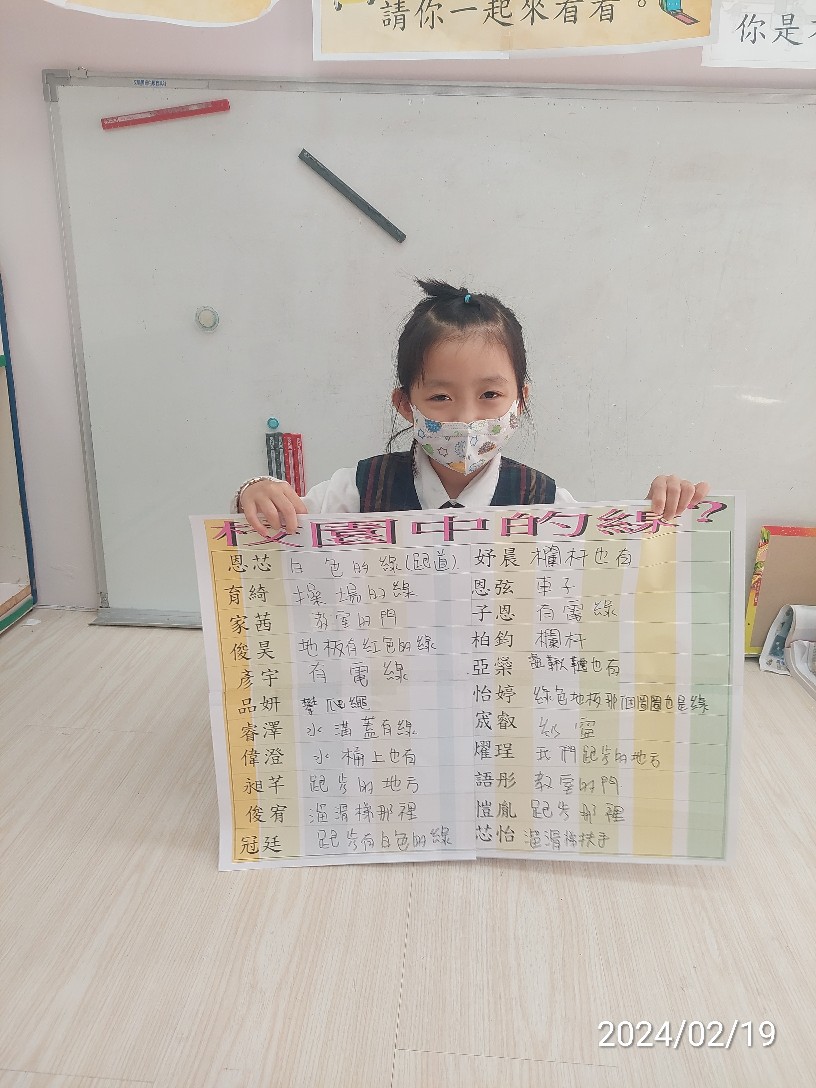 請你一起來看看。
你是
校園中的線?
恩芯 白色的線(跑道)
育綺 操場的線
家茜 教室的門
俊昊 地板有紅色的線
彥宇 有電線
品妍 攀爬繩
睿澤 水溝蓋有線
偉澄 水桶上也有
昶芊 跑步的地方
俊宥 溜滑梯那裡
冠廷 跑步有白色的線
妤晨 欄杆也有
恩弦 車子
子恩 有電線
柏鈞 欄杆
亞榮 盪鞦韆也有
怡婷 綠色地板那個圈圈也是線
宬叡 紗窗
燿珵 我們跑步的地方
語彤 教室的門
愷胤 跑步那裡
芯怡 溜滑梯扶手
2024/02/19